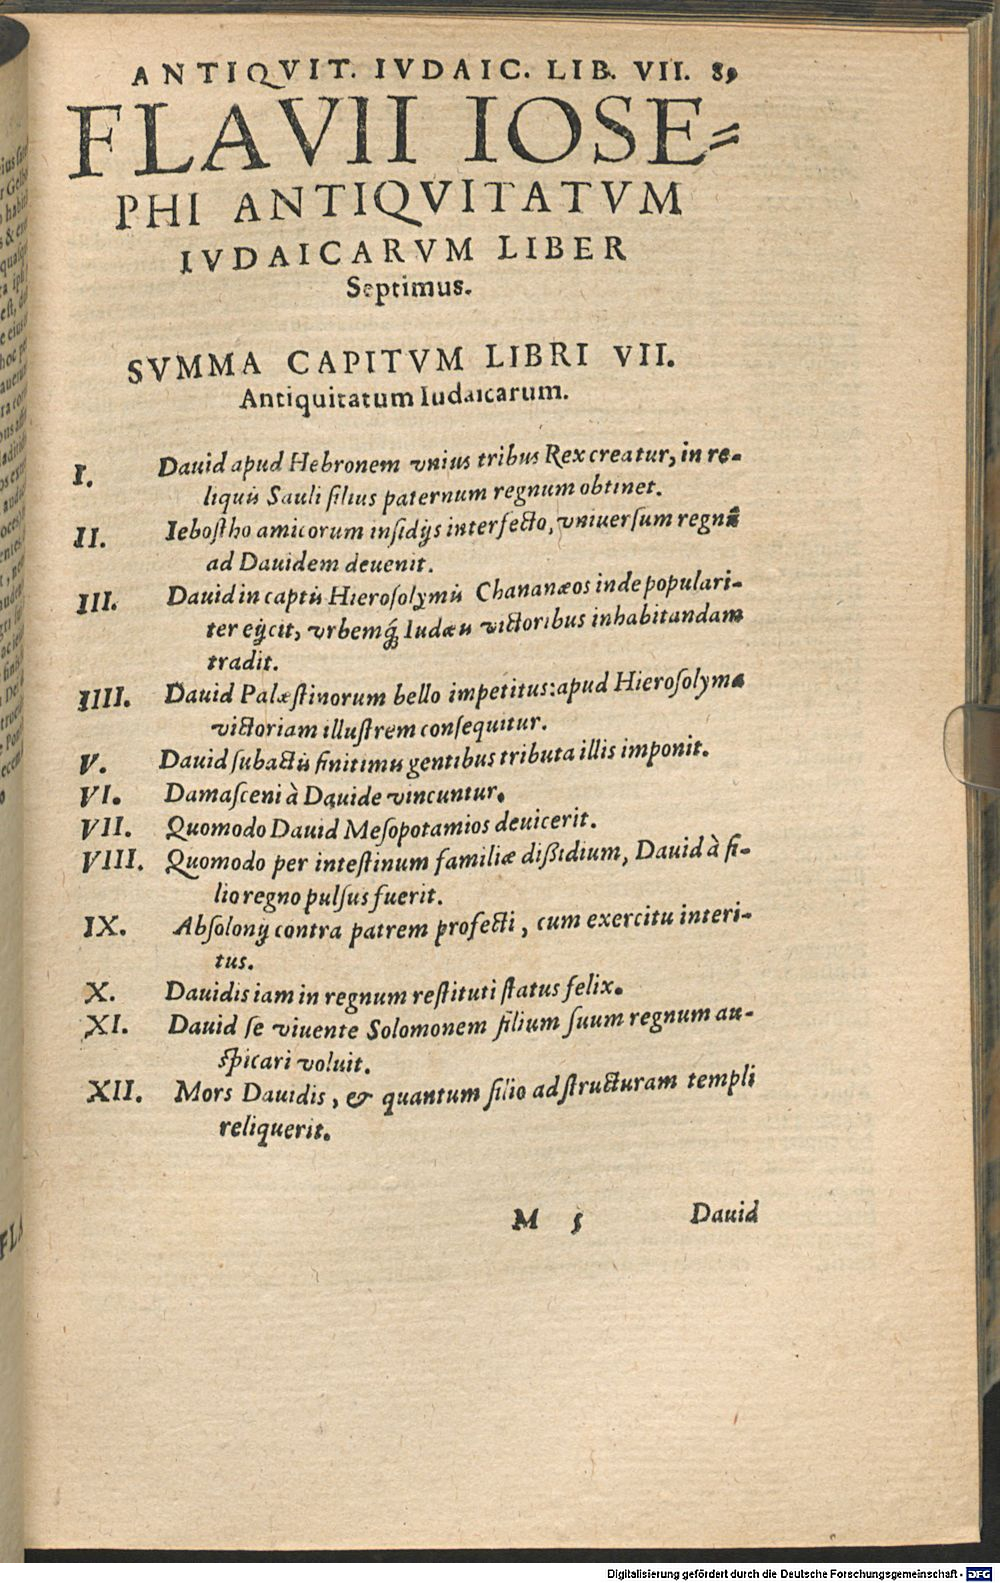 ANTIQVIT. IVDAIC. LIB. VII. 8,
FLAVII IOSE=
PHI ANTIQVITATVM
IVDAICARVM LIBER
Septimus.
SVMMA CAPITVM LIBRI VII.
Antiquitatum Iudaicarum.
I. Dauid apud Hebronem vnius tribus Rex creatur, in re-
liquis Sauli filius paternum regnum obtinet.
II. Iebostho amicorum insidijs interfecto, vniuersum regnū
ad Dauidem deuenit.
III. Dauid in captis Hierosolymis Chananæos inde populari-
ter eijcit, vrbemq́; Iudæis victoribus inhabitandam
tradit.
IIII. Dauid Palæstinorum bello impetitus: apud Hierosolyma
victoriam illustrem consequitur.
V. Dauid subactis finitimis gentibus tributa illis imponit.
VI. Damasceni à Dauide vincuntur.
VII. Quomodo Dauid Mesopotamios deuicerit.
VIII. Quomodo per intestinum familiæ dißidium, Dauid à fi-
lio regno pulsus fuerit.
IX. Absolonij contra patrem profecti, cum exercitu interi-
tus.
X. Dauidis iam in regnum restituti status felix.
XI. Dauid se viuente Solomonem filium suum regnum au-
spicari voluit.
XII. Mors Dauidis, & quantum filio ad structuram templi
reliquerit.
M 5 Dauid
Digitalisierung gefördert durch die Deutsche Forschungsgemeinschaft - DFG